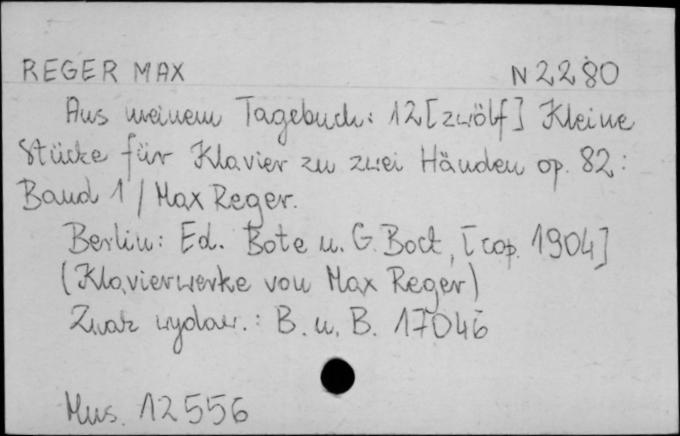 REGER MAX N 2280
Aus meinem Tagebuch: 12 [zwölf] Kleine
Stücke für Klavier zu zwei Händen op. 82:
Band 1 / Max Reger.
Berlin: Ed. Bote u. G. Bock, [cop. 1904]
(Klavierwerke von Max Reger)
Znak wydaw.: B. u. B. 17046
Mus. 12556